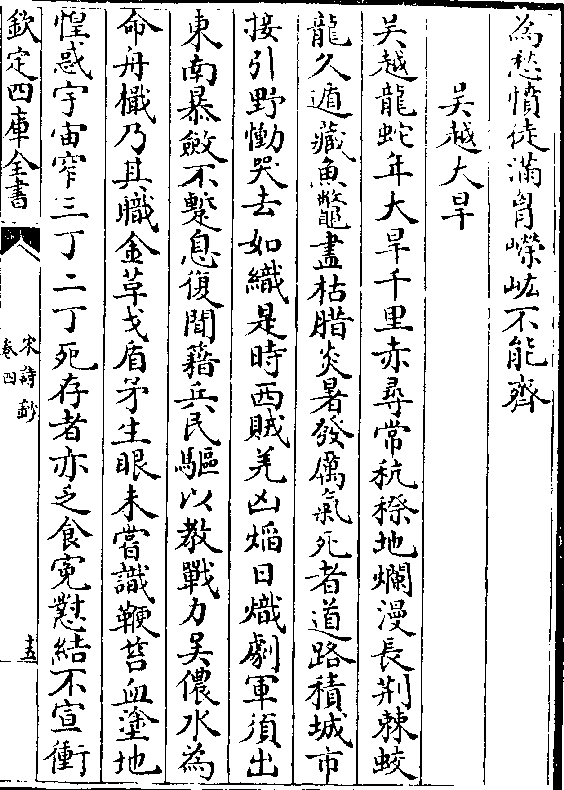 為愁憤徒滿胷嶸𡵓不能齊
吴越大旱
吳越龍蛇年大旱千里赤尋常秔穄地爛漫長荆棘蛟
龍久遁藏魚鼈盡枯腊炎暑發厲氣死者道路積城市
接引野慟哭去如織是時西賊羌凶熖日熾劇軍須出
東南暴斂不暫息復聞籍兵民驅以教戰力吴儂水為
命舟檝乃其職金革戈盾矛生眼未嘗識鞭笞血塗地
惶惑宇宙窄三丁二丁死存者亦乏食寃懟結不宣衝
欽定四庫全書
宋詩鈔
卷四